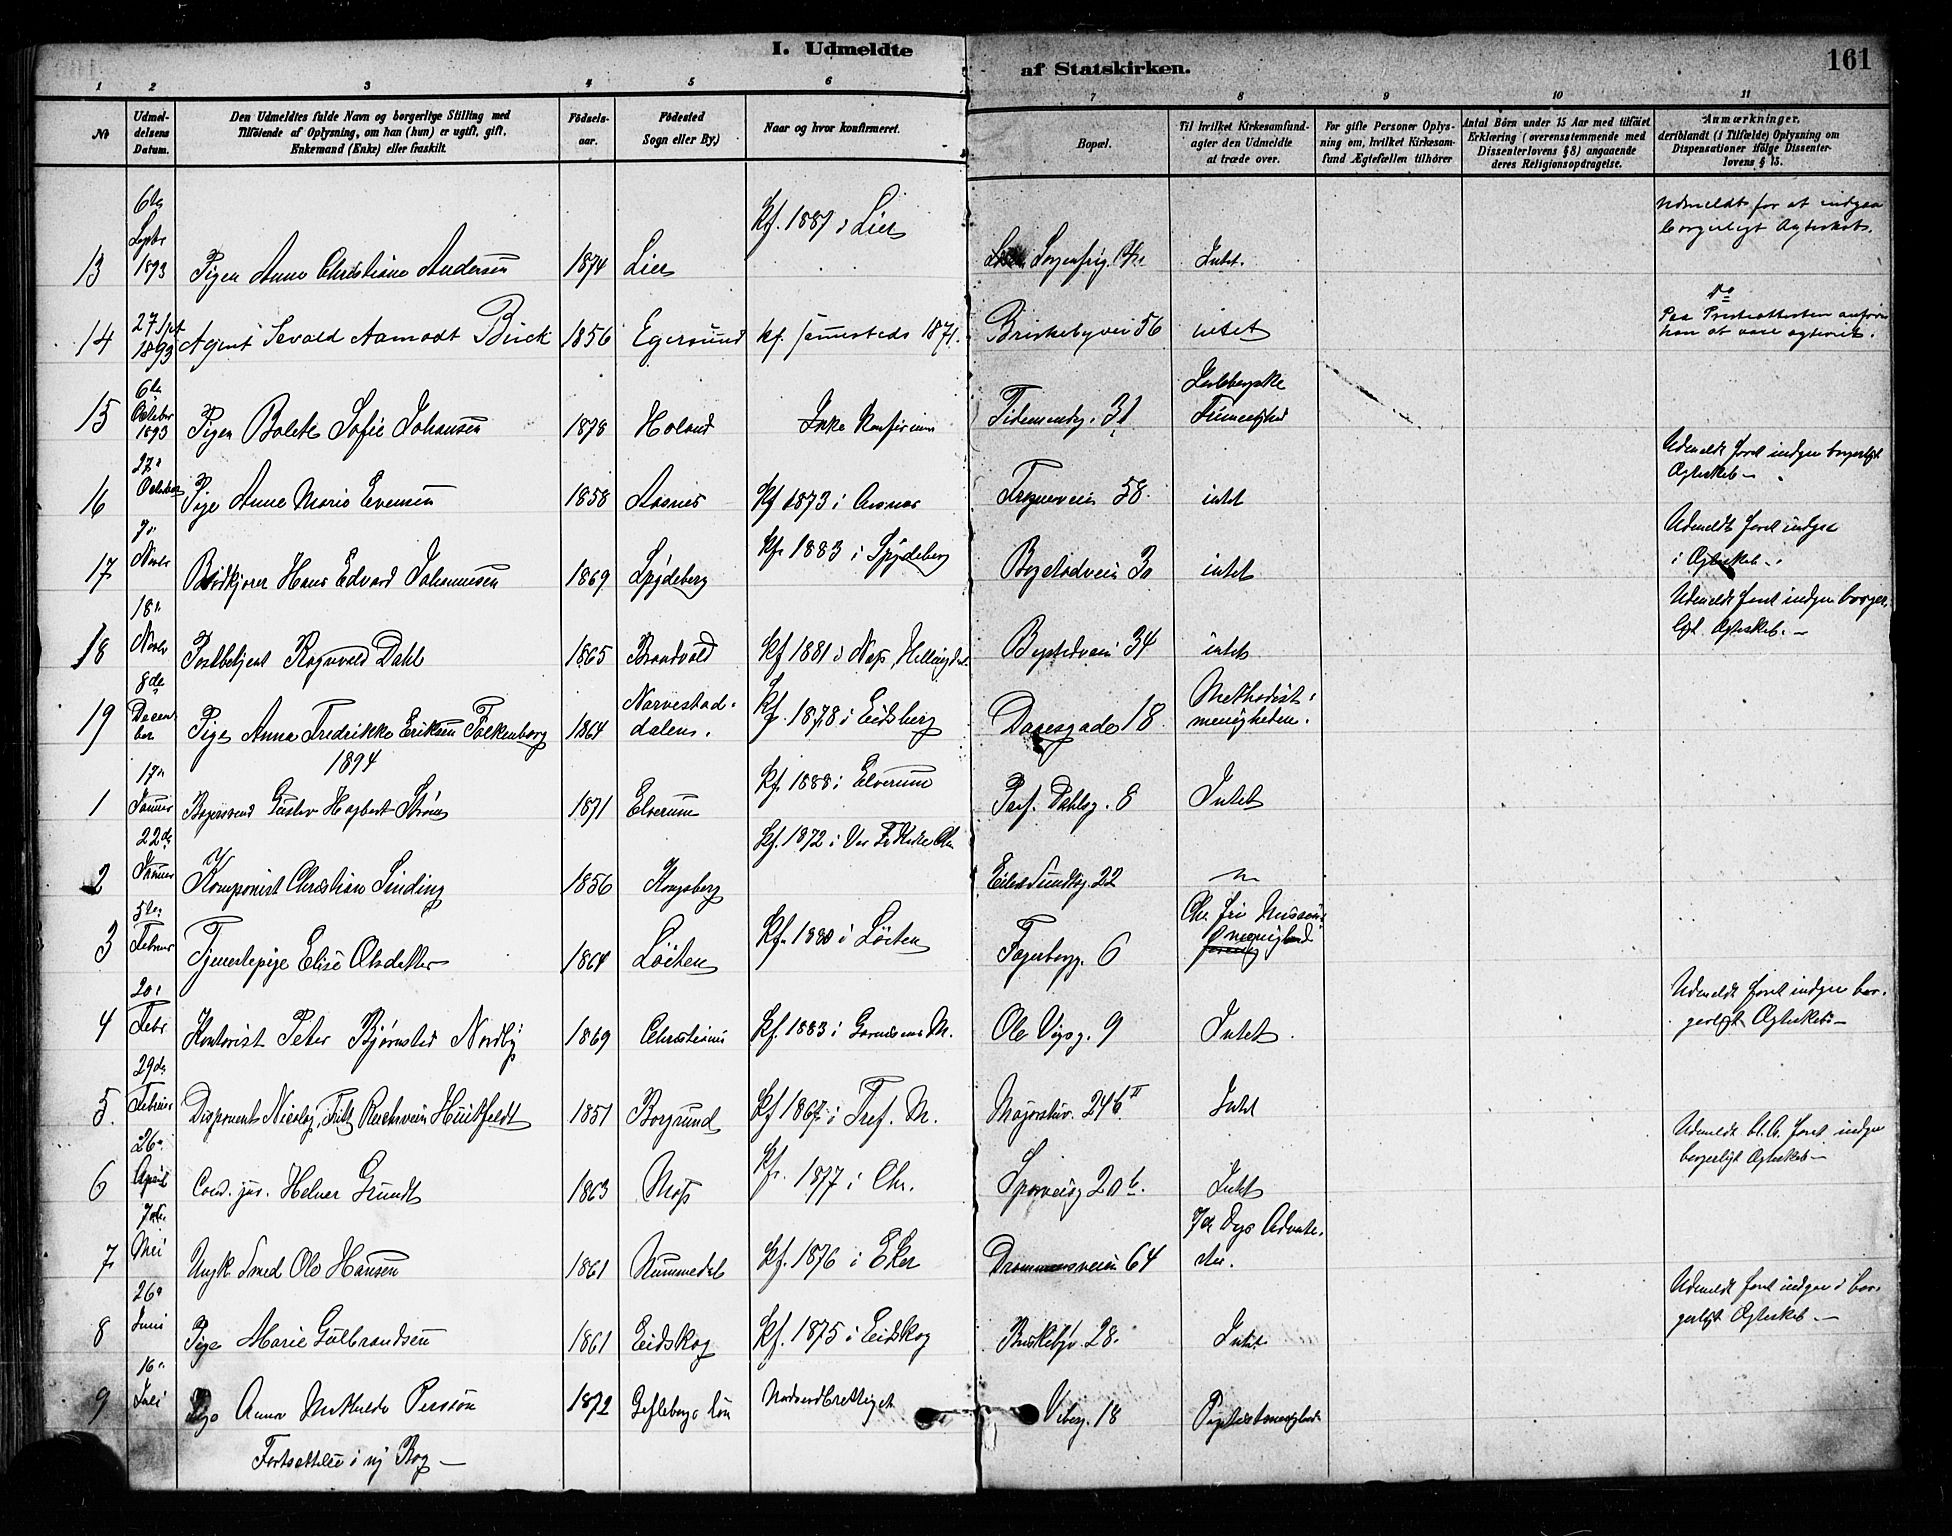 I. Udmeldte
af Statskirken.
161
1 2 3 4 5 6 7 8 9 10 11
No
Udmel-
delsens
Datum.
Den Udmeldtes fulde Navn og borgerlige Stilling med
Tilföiende af Oplysning, om han (hun) er ugift, gift,
Enkemand (Enke) eller fraskilt.
Födsels-
aar.
Födested
Sogn eller By.)
Naar og hvor konfirmeret.
Bopæl.
Til hvilket Kirkesamfund-
agter den Udmeldte
at træde over.
For gifte Personer Oplys-
ning om, hvilket Kirkesam-
fund Ægtefællen tilhörer
Antal Börn under 15 Aar med tilföiet
Erklæring (overensstemmende med
Dissenterlovens § 8) angaaende
deres Religionsopdragelse.
Anmærkninger,
deriblandt (i Tilfælde) Oplysning om
Dispensationer ifölge Dissenter-
lovens § 15.
13 6te Septbr 1893 Pigen Anne Christiane Andersen 1874 Lier Kf. 1887 i Lier Sorgenfrig. Intet. Udmeldt for at indgaa
borgerligt Ægteskab.
14 27 Spt 1893 Agent Sevald Aamodt Buck 1856 Egersund kf. sammesteds 1871. Briskebyvei 56 intet Do
Paa
han at være
15 6te October 1893 Pigen Bolette Sofie Johansen 1878 Holand Ikke Konfirm Tidemandsg. 31
16 27de October Pige Anne Marie Evensen 1858 Aasnes Kf 1873 i Aasnes Frognerveien 58. intet Udmeldt for at indgaa borgerligt
Ægteskab—
17 7de Novbr Hans Edvard Johannesen 1869 Spydeberg Kf. 1883 i Spydeberg Bogstadveien 30 intet Udmeldt for at indgaa
i Ægteskab.
18 18de Novbr Postbetjent Ragnvald Dahl 1865 Brandvold Kf 1881 i Næs, Hallingdal Bogstadveien 34 intet Udmeldt for at indgaa borger-
ligt Ægteskab.—
19 8de Decem-
ber Pige Anna Fredrikke Eriksen Falkenborg 1864 Navestad-
dalen. Kf. 1878 i Eidsberg Daasgade 18 Methodist-
menigheden.
1894
1 17de Januar Gustav Hagbart Strøm 1871 Elverum Kf. 1888 i Elverum Prof. Dahlsg. 8 Intet
2 22de Januar Komponist Christian Sinding 1856 Kongsberg Kf. 1872 i Vor Fr Kirke Chr. Eilert Sundtsg. 22 "
3 5te Februar Tjenestepige Elise Olsdatter 1864 Löiten Kf. 1880 i Löiten Fagerborgg. 6 Chr. fri Missions-
menighed
4 20de Febr Kontorist Peter Bjørnstad Nordby 1869 Christiania Kf. 1883 i Garnisons M. Ole Vigsg. 9 Intet Udmeldt for at indgaa bor-
gerligt Ægteskab—
5. Februar Disponent Nicolay Huitfeldt 1851 Borgund Kf 1867 i Tref. M. Majorstuv. 24b II Intet
6 26de April Cand. jur. Helmer Grundt 1863 Moss Kf. 1877 i Chr. Sporveisg 20 b. Intet Udmeldt bl. A. for at indgaa
borgerligt Ægteskab—
7 7de Mai Ungk. Smed Ole Hansen 1861 Nummedal Kf. 1876 i Eker Drammensveien 64 7de Dags Advent-
ister.
8 26de Juni Pige Marie Gulbrandsen 1861 Eidskog Kf. 1875 i Eidskog Briskebyv. 28. Intet Udmeldt for at indgaa i bor-
gerligt Ægteskab.—
9 16de Juli Pige Anna Mathilde Persson 1872 Gefleborgs län Vibesg. 18 Baptistmenighed
Fortsættelse i ny Bog—